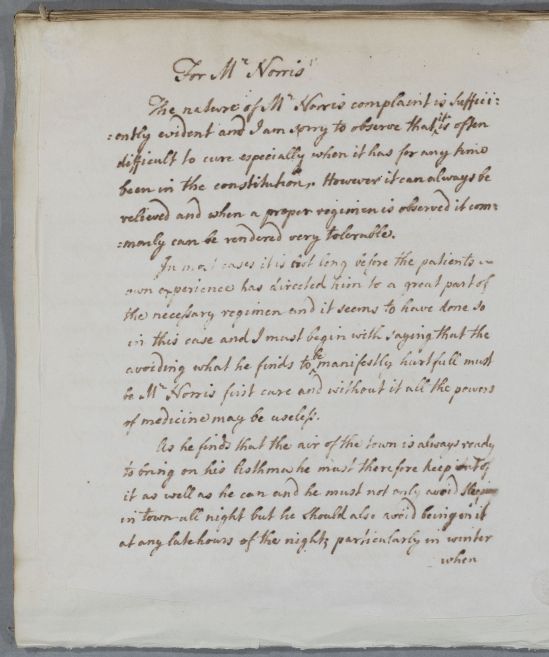 For Mr Norris
The nature of Mr Norris complaint is suffici:
:ently evident and I am sorry to observe that it is often
difficult to cure especially when it has for any time
been in the constitution. However it can always be
relieved and when a proper regimen is observed it com:
:monly can be rendered very tolerable.
In most cases it is not long before the patients
own experience has directed him to a great part of
the necessary regimen and it seems to have done so
in this case and I must begin with saying that the
avoiding what he finds to be manifestly hurtfull must
be Mr Norris first care and without it all the powers
of medicine may be useless.
As he finds that the air of the town is always ready
to bring on his Asthma he must therefore keep out of
it as well as he can and he must not only avoid
in town all night but he should also avoid being in it
at any late hours of the night, particularly in winter
when